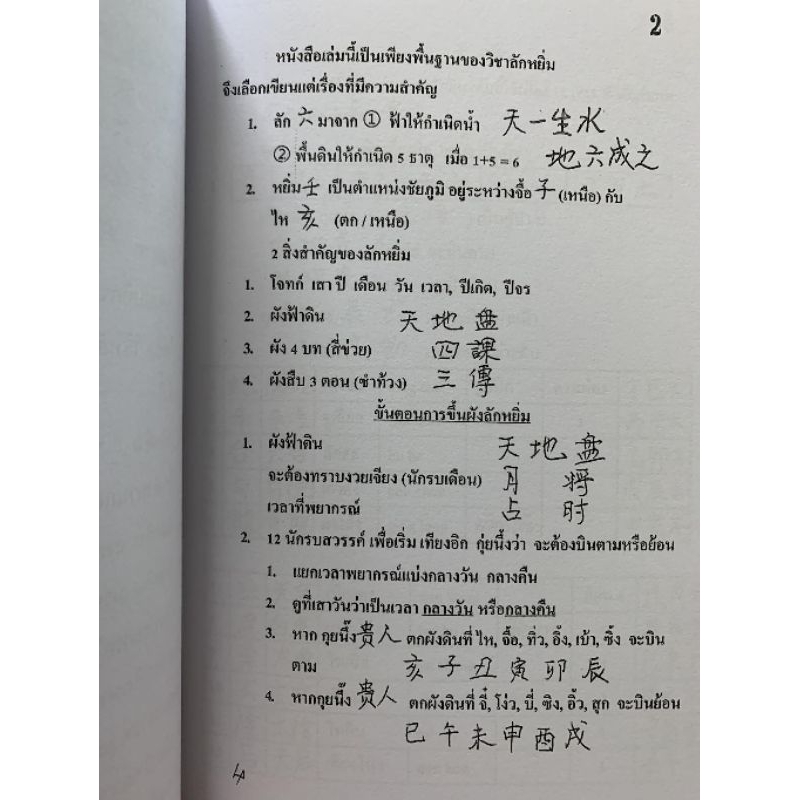 2
หนังสือเล่มนี้เป็นเพียงพื้นฐานของวิชาลักหยิ่ม
จึงเลือกเขียนแต่เรื่องที่มีความสำคัญ
1. ลัก 六 มาจาก ① ฟ้าให้กำเนิดน้ำ 天一生水
② พื้นดินให้กำเนิด 5 ธาตุ เมื่อ 1+5 = 6 地六成之
2. หยิ่ม 壬 เป็นตำแหน่งชัยภูมิ อยู่ระหว่างจื้อ 子 (เหนือ) กับ
ไห 亥 (ตก / เหนือ)
2 สิ่งสำคัญของลักหยิ่ม
1. โจทก์ เสา ปี เดือน วัน เวลา, ปีเกิด, ปีจร
2. ผังฟ้าดิน 天地盘
3. ผัง 4 บท (สี่ข่วย) 四課
4. ผังสืบ 3 ตอน (ซำท้วง) 三傳
ขั้นตอนการขึ้นผังลักหยิ่ม
1. ผังฟ้าดิน 天地盘
จะต้องทราบงวยเจียง (นักรบเดือน) 月将
เวลาที่พยากรณ์ 占时
2. 12 นักรบสวรรค์ เพื่อเริ่ม เทียงอิก กุ่ยนึ้งว่า จะต้องบินตามหรือย้อน
1. แยกเวลาพยากรณ์แบ่งกลางวัน กลางคืน
2. ดูที่เสาวันว่าเป็นเวลา กลางวัน หรือกลางคืน
3. หาก กุยนึ๊ง 貴人 ตกผังดินที่ ไห, จื้อ, ทิ่ว, อิ๊ง, เบ้า, ซิ้ง จะบิน
ตาม 亥子丑寅卯辰
4. หากกุยนึ๊ง 貴人 ตกผังดินที่ จี๋, โง่ว, บี่, ซิง, อิ้ว, สุก จะบินย้อน
巳午未申酉戌